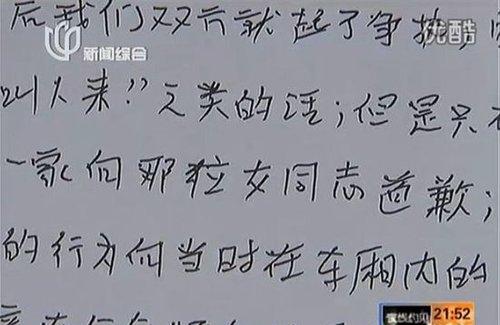 后我们双方就起了争执
新闻综合
优酷
叫人来”之类的话；但是只
一家向那位女同志道歉；
的行为向当时在车厢内的
21:52